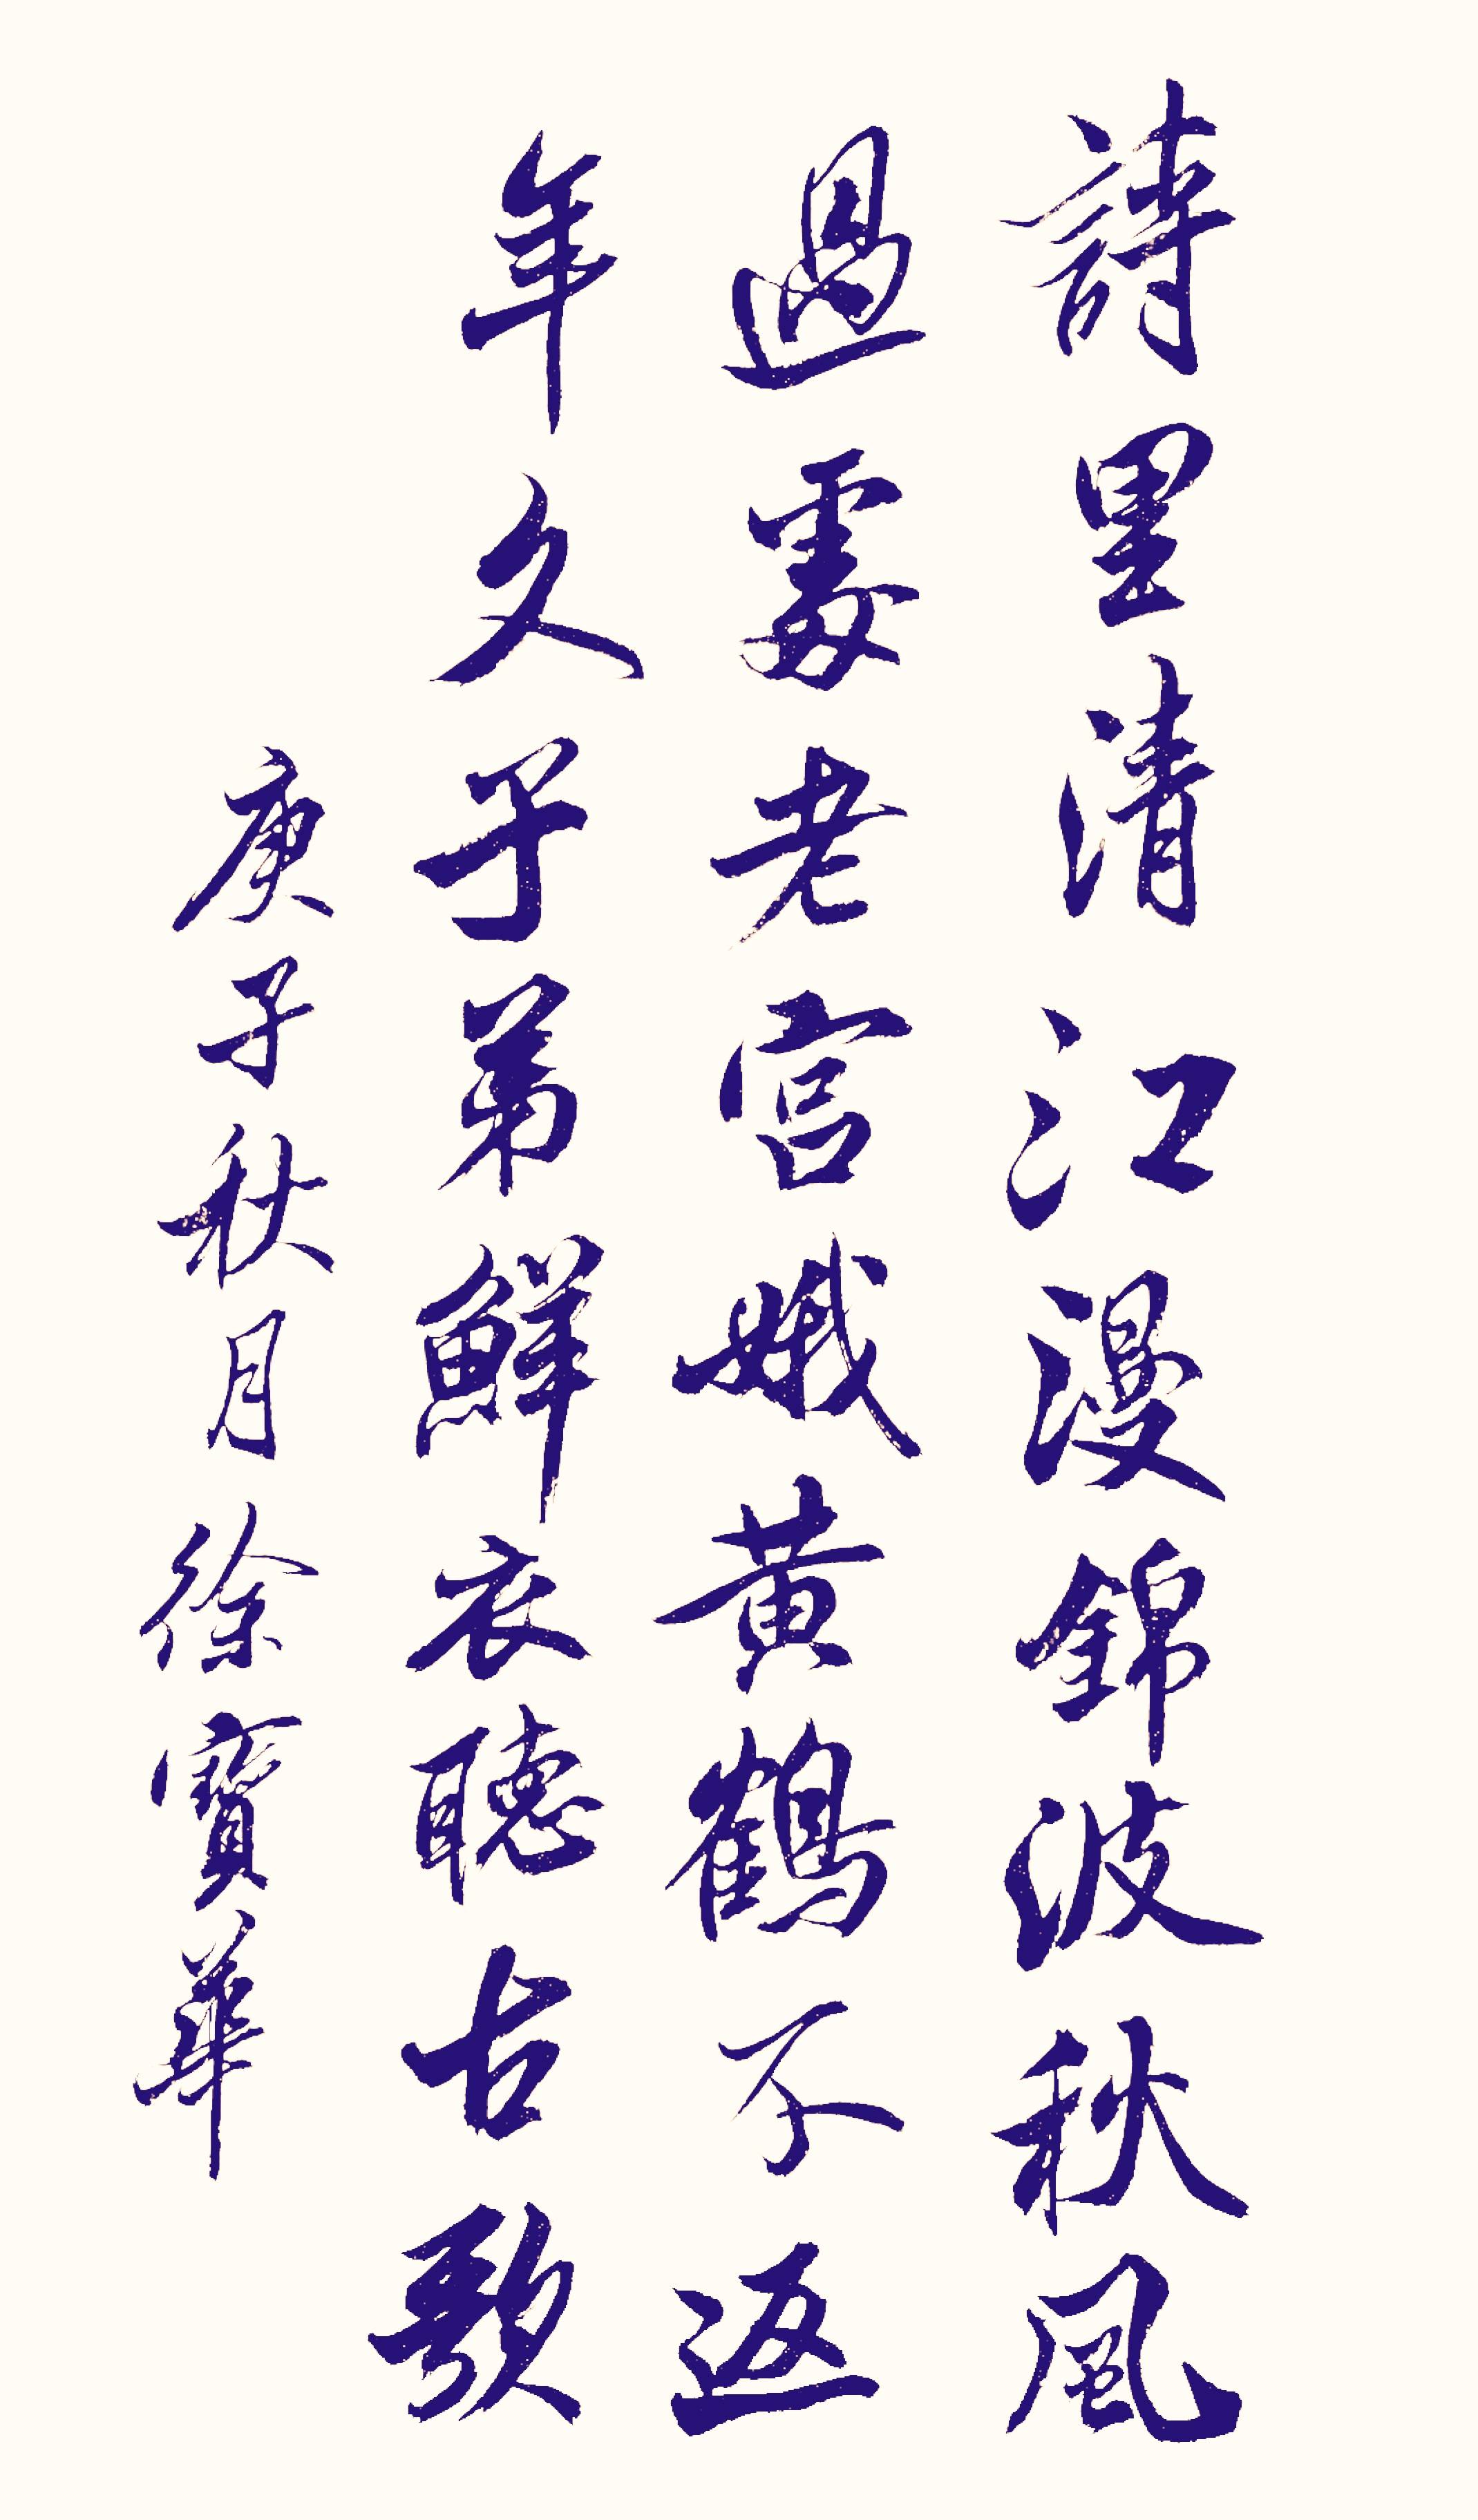 詩里清江漫錦波秋風
過處老宮娥黃鶴不返
年久子弟鮮衣聽古歌
庚子秋月徐寶華